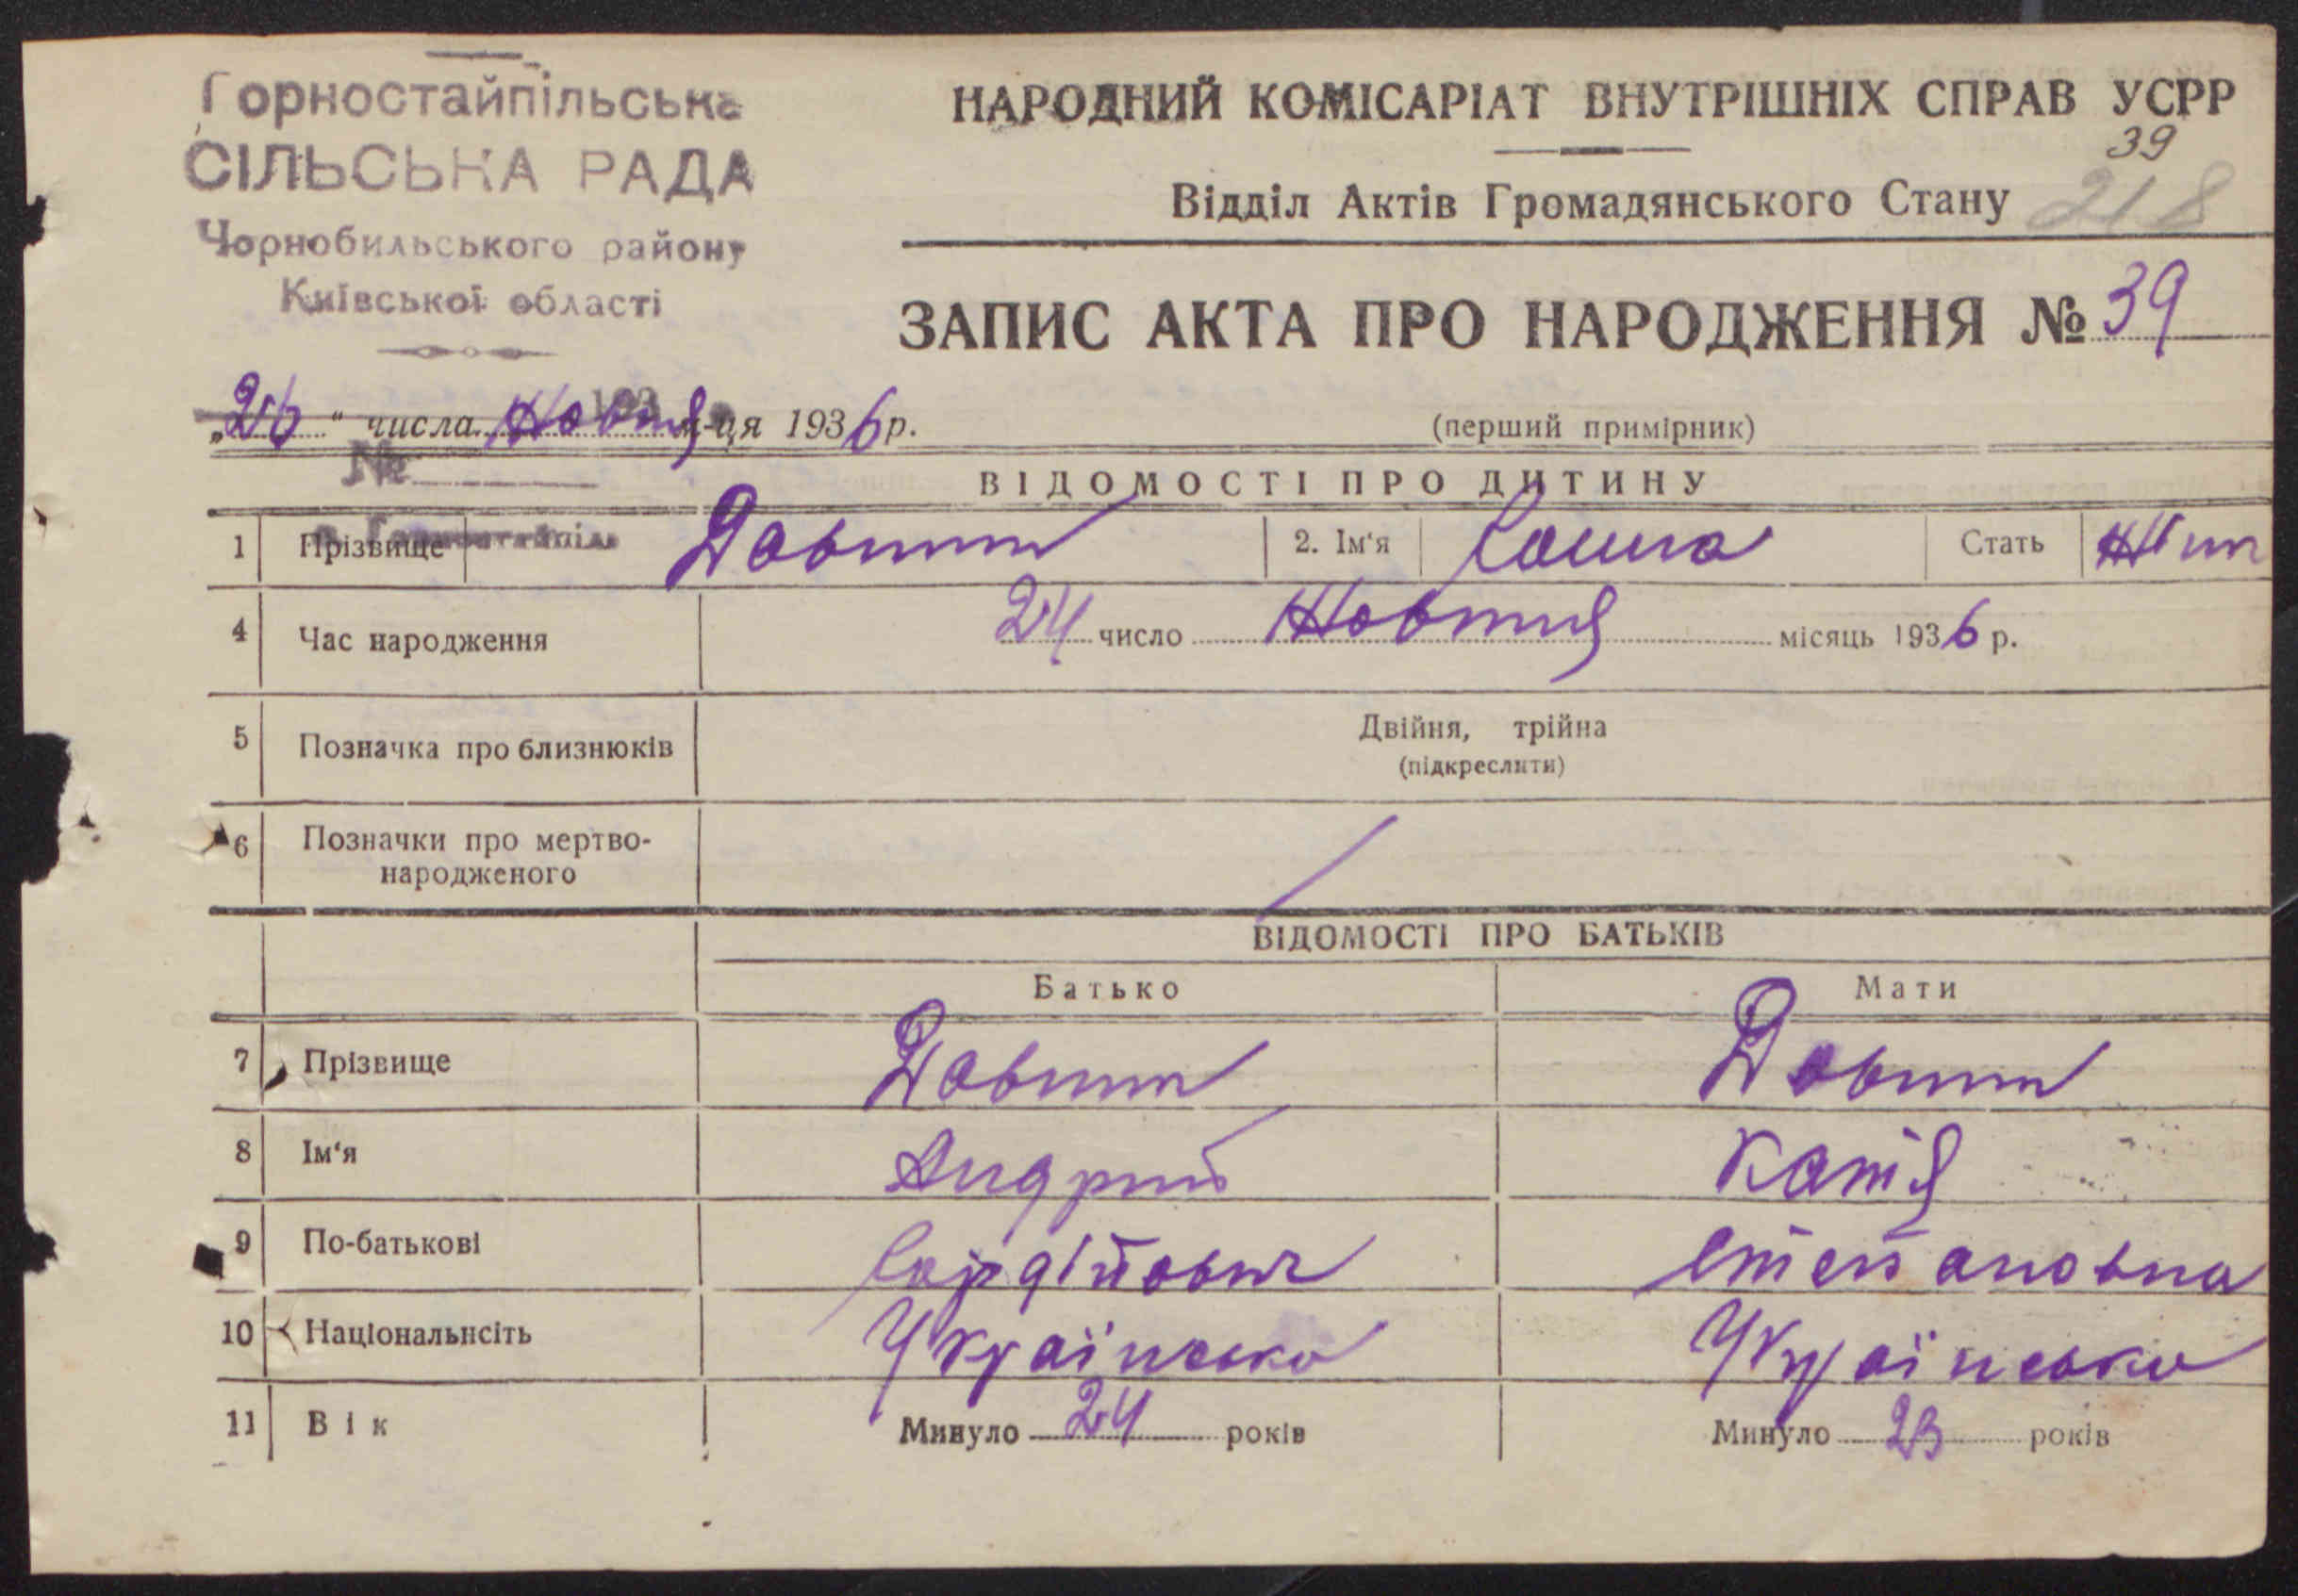 Горностайпільська
СІЛЬСЬКА РАДА
Чорнобильського району
Київської області
НАРОДНИЙ КОМІСАРІАТ ВНУТРІШНІХ СПРАВ УСРР
39
Відділ Актів Громадянського Стану 218
ЗАПИС АКТА ПРО НАРОДЖЕННЯ № 39
„26“ числа Жовтня м-ця 1936 р.
(перший примірник)
193
№
ВІДОМОСТІ ПРО ДИТИНУ
с. Горностайпіль
1 Прізвище Довит 2. Ім‘я Соша Стать Жін
4 Час народження 24 число Жовтня місяць 1936 р.
5 Позначка про близнюків Двійня, трійна
(підкреслити)
6 Позначки про мертво-
народженого
ВІДОМОСТІ ПРО БАТЬКІВ
Батько Мати
7 Прізвище Довит Довит
8 Ім‘я Андрий Катя
9 По-батькові Степановна
10 Національнсіть Українсько Українсько
11 Вік Минуло 24 років Минуло 23 років